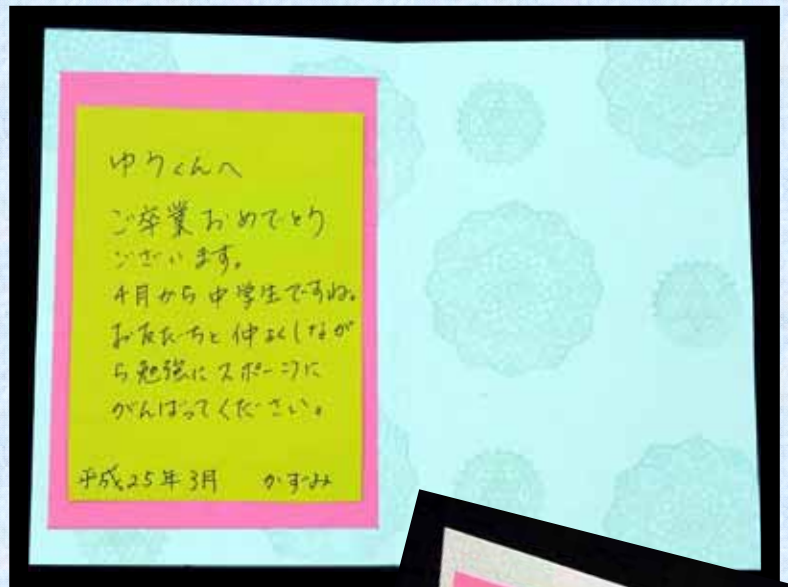 ゆうくんへ
ご卒業おめでとう
ございます。
4月から中学生ですね。
お友だちと仲よくしなが
ら勉強にスポーツに
がんばってください。
平成25年3月 かすみ